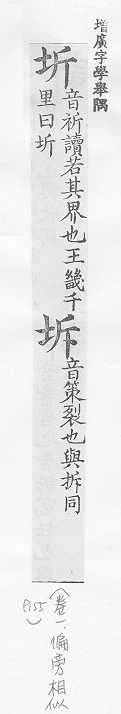 增廣字學舉隅
圻音祈讀若其界也王畿千里曰圻
坼音策裂也與拆同
(卷一、偏旁相似
P.155)